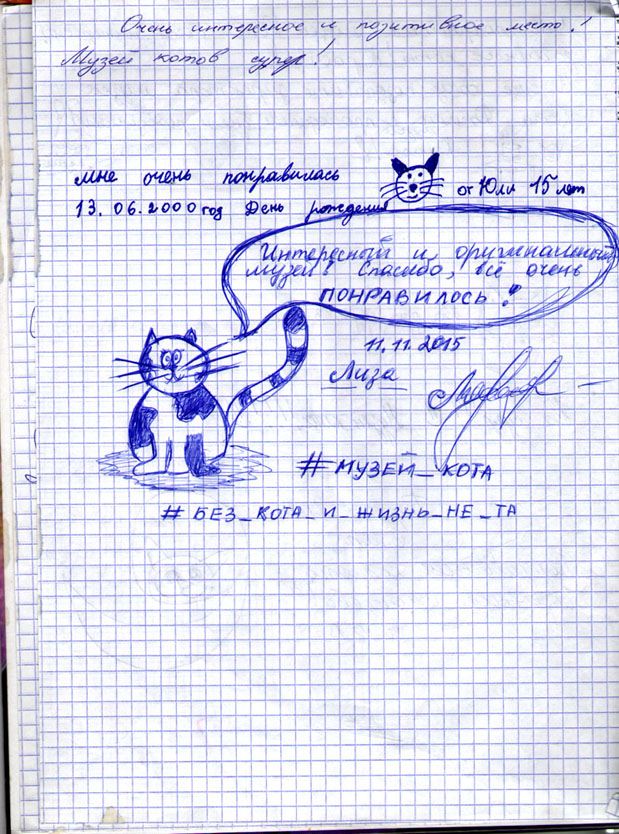 Очень интересное и позитивное место!
Музей котов супер!
мне очень понравилась
от Юли 15 лет
13. 06. 2000 год День рождения
Интересный и оригинальный
музей! Спасибо, всё очень
ПОНРАВИЛОСЬ!
11.11.2015
Лиза
#МУЗЕЙ_КОТА
#БЕЗ_КОТА_И_ЖИЗНЬ_НЕ_ТА